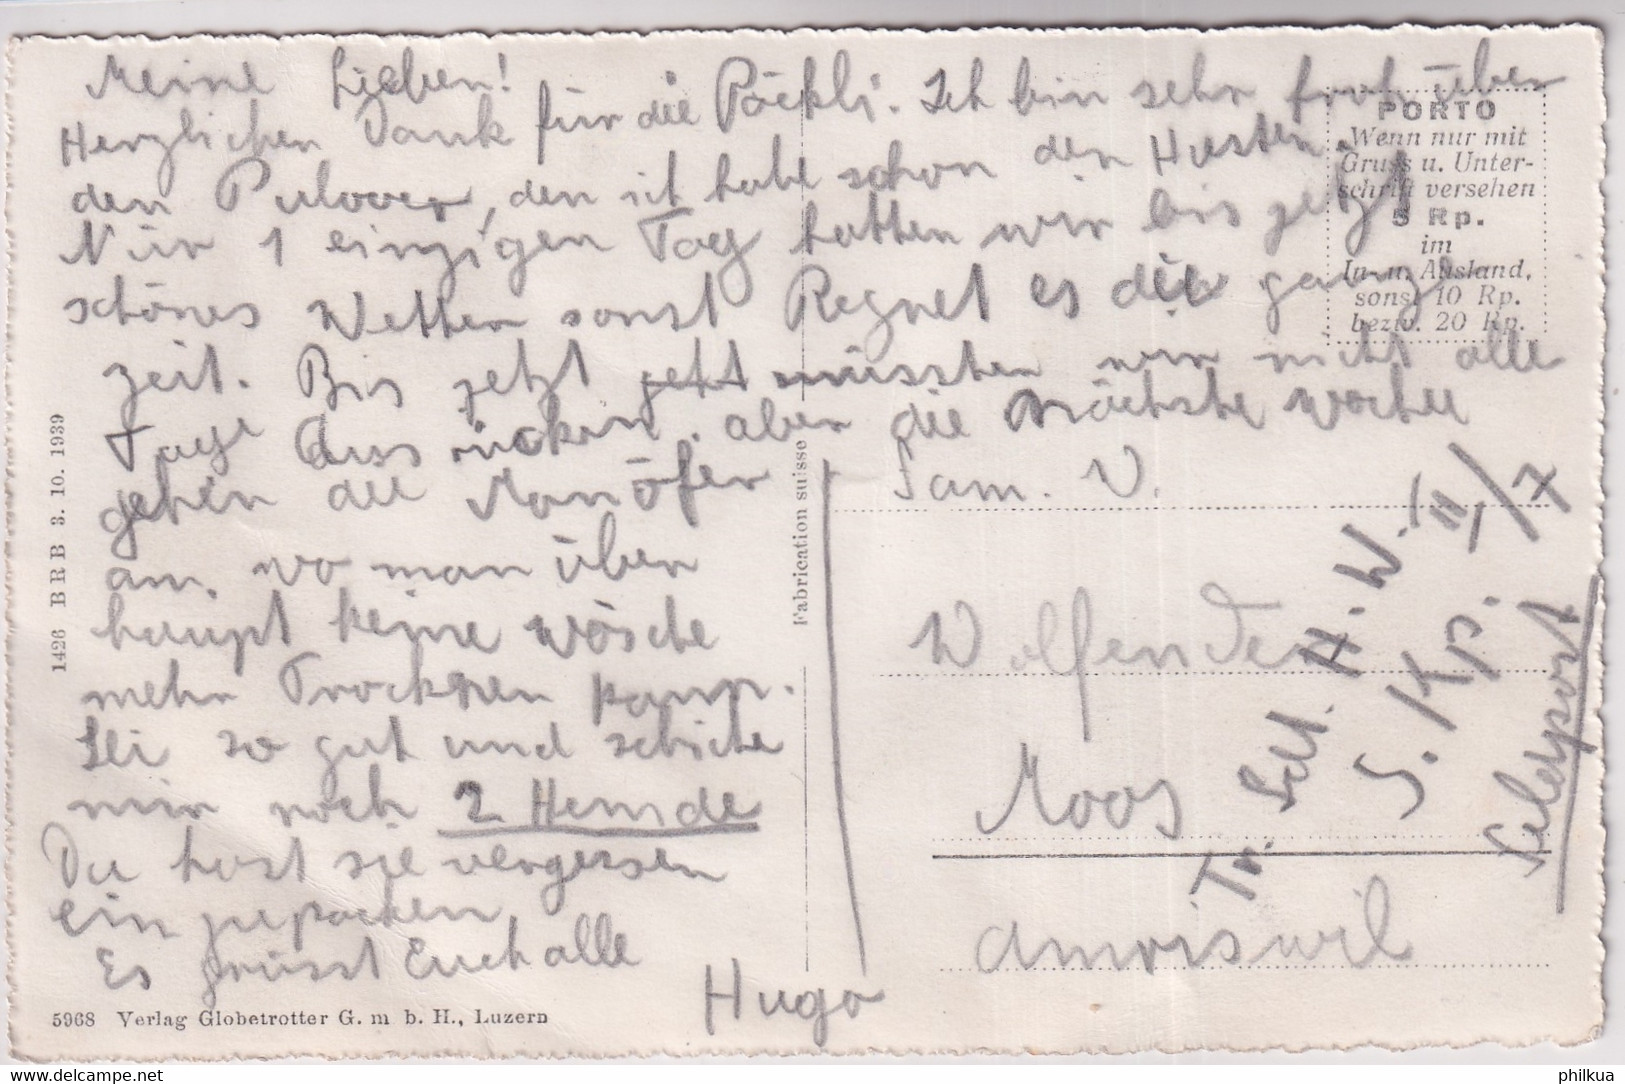 Meine Lieben!
Herzlichen Dank für die Päckli. Ich bin sehr froh über
den Pulover, den ich habe schon den Husten.
Nur 1 einzigen Tag hatten wir bis jetzt
schönes Wetter sonst Regnet es die ganze
zeit. Bis jetzt mussten wir nicht alle
Tage Ausrücken, aber die Nächste woche
gehen die Manöfer
an, wo man über
haupt keine wäsche
mehr Trocknen kann.
Sei so gut und schicke
mir noch 2 Hemde
Du hast sie vergessen
ein zupacken
Es grüsst Euch alle
Hugo
PORTO
Wenn nur mit
Gruss u. Unter-
schrift versehen
5 Rp.
im
In- u. Ausland,
sonst 10 Rp.
bezw. 20 Rp.
Fam. V.
Wolfender
Moos
Amriswil
Tr. Sol. H. W. /II/7
S. Kp.
Feldpost
1426 BRB 3. 10. 1939
Fabrication suisse
5968 Verlag Globetrotter G. m b. H., Luzern
philkua
delcampe.net